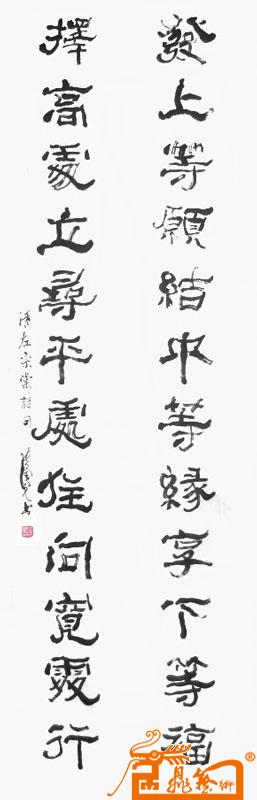 發上等願結中等緣享下等福
擇高處立尋平處住向寬處行
清左宗棠語句
鼎藝術